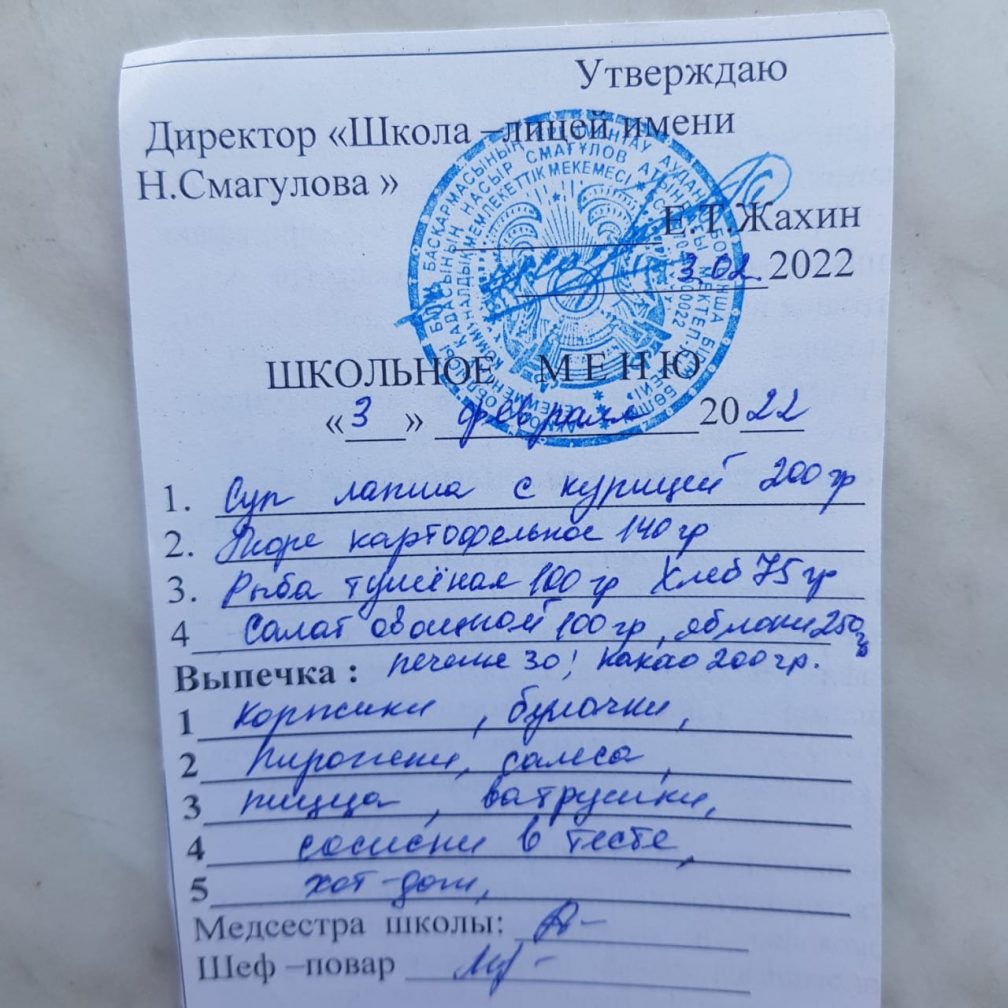 Утверждаю
Директор «Школа –лицей имени
Н.Смагулова »
Е.Т.Жахин
3.02. 2022
ШКОЛЬНОЕ М Е Н Ю
«3» февраля 2022
1. Суп лапша с курицей 200 гр
2. Пюре картофельное 140 гр
3. Рыба тушёная 100 гр Хлеб 75 гр
4 Салат овощной 100 гр, яблоки 250 гр
Выпечка : печенье 30; какао 200 гр.
1 Коржики, булочки,
2 Пирожки, самса,
3 пицца, ватрушки,
4 сосиски в тесте,
5 хот-доги,
Медсестра школы:
Шеф –повар